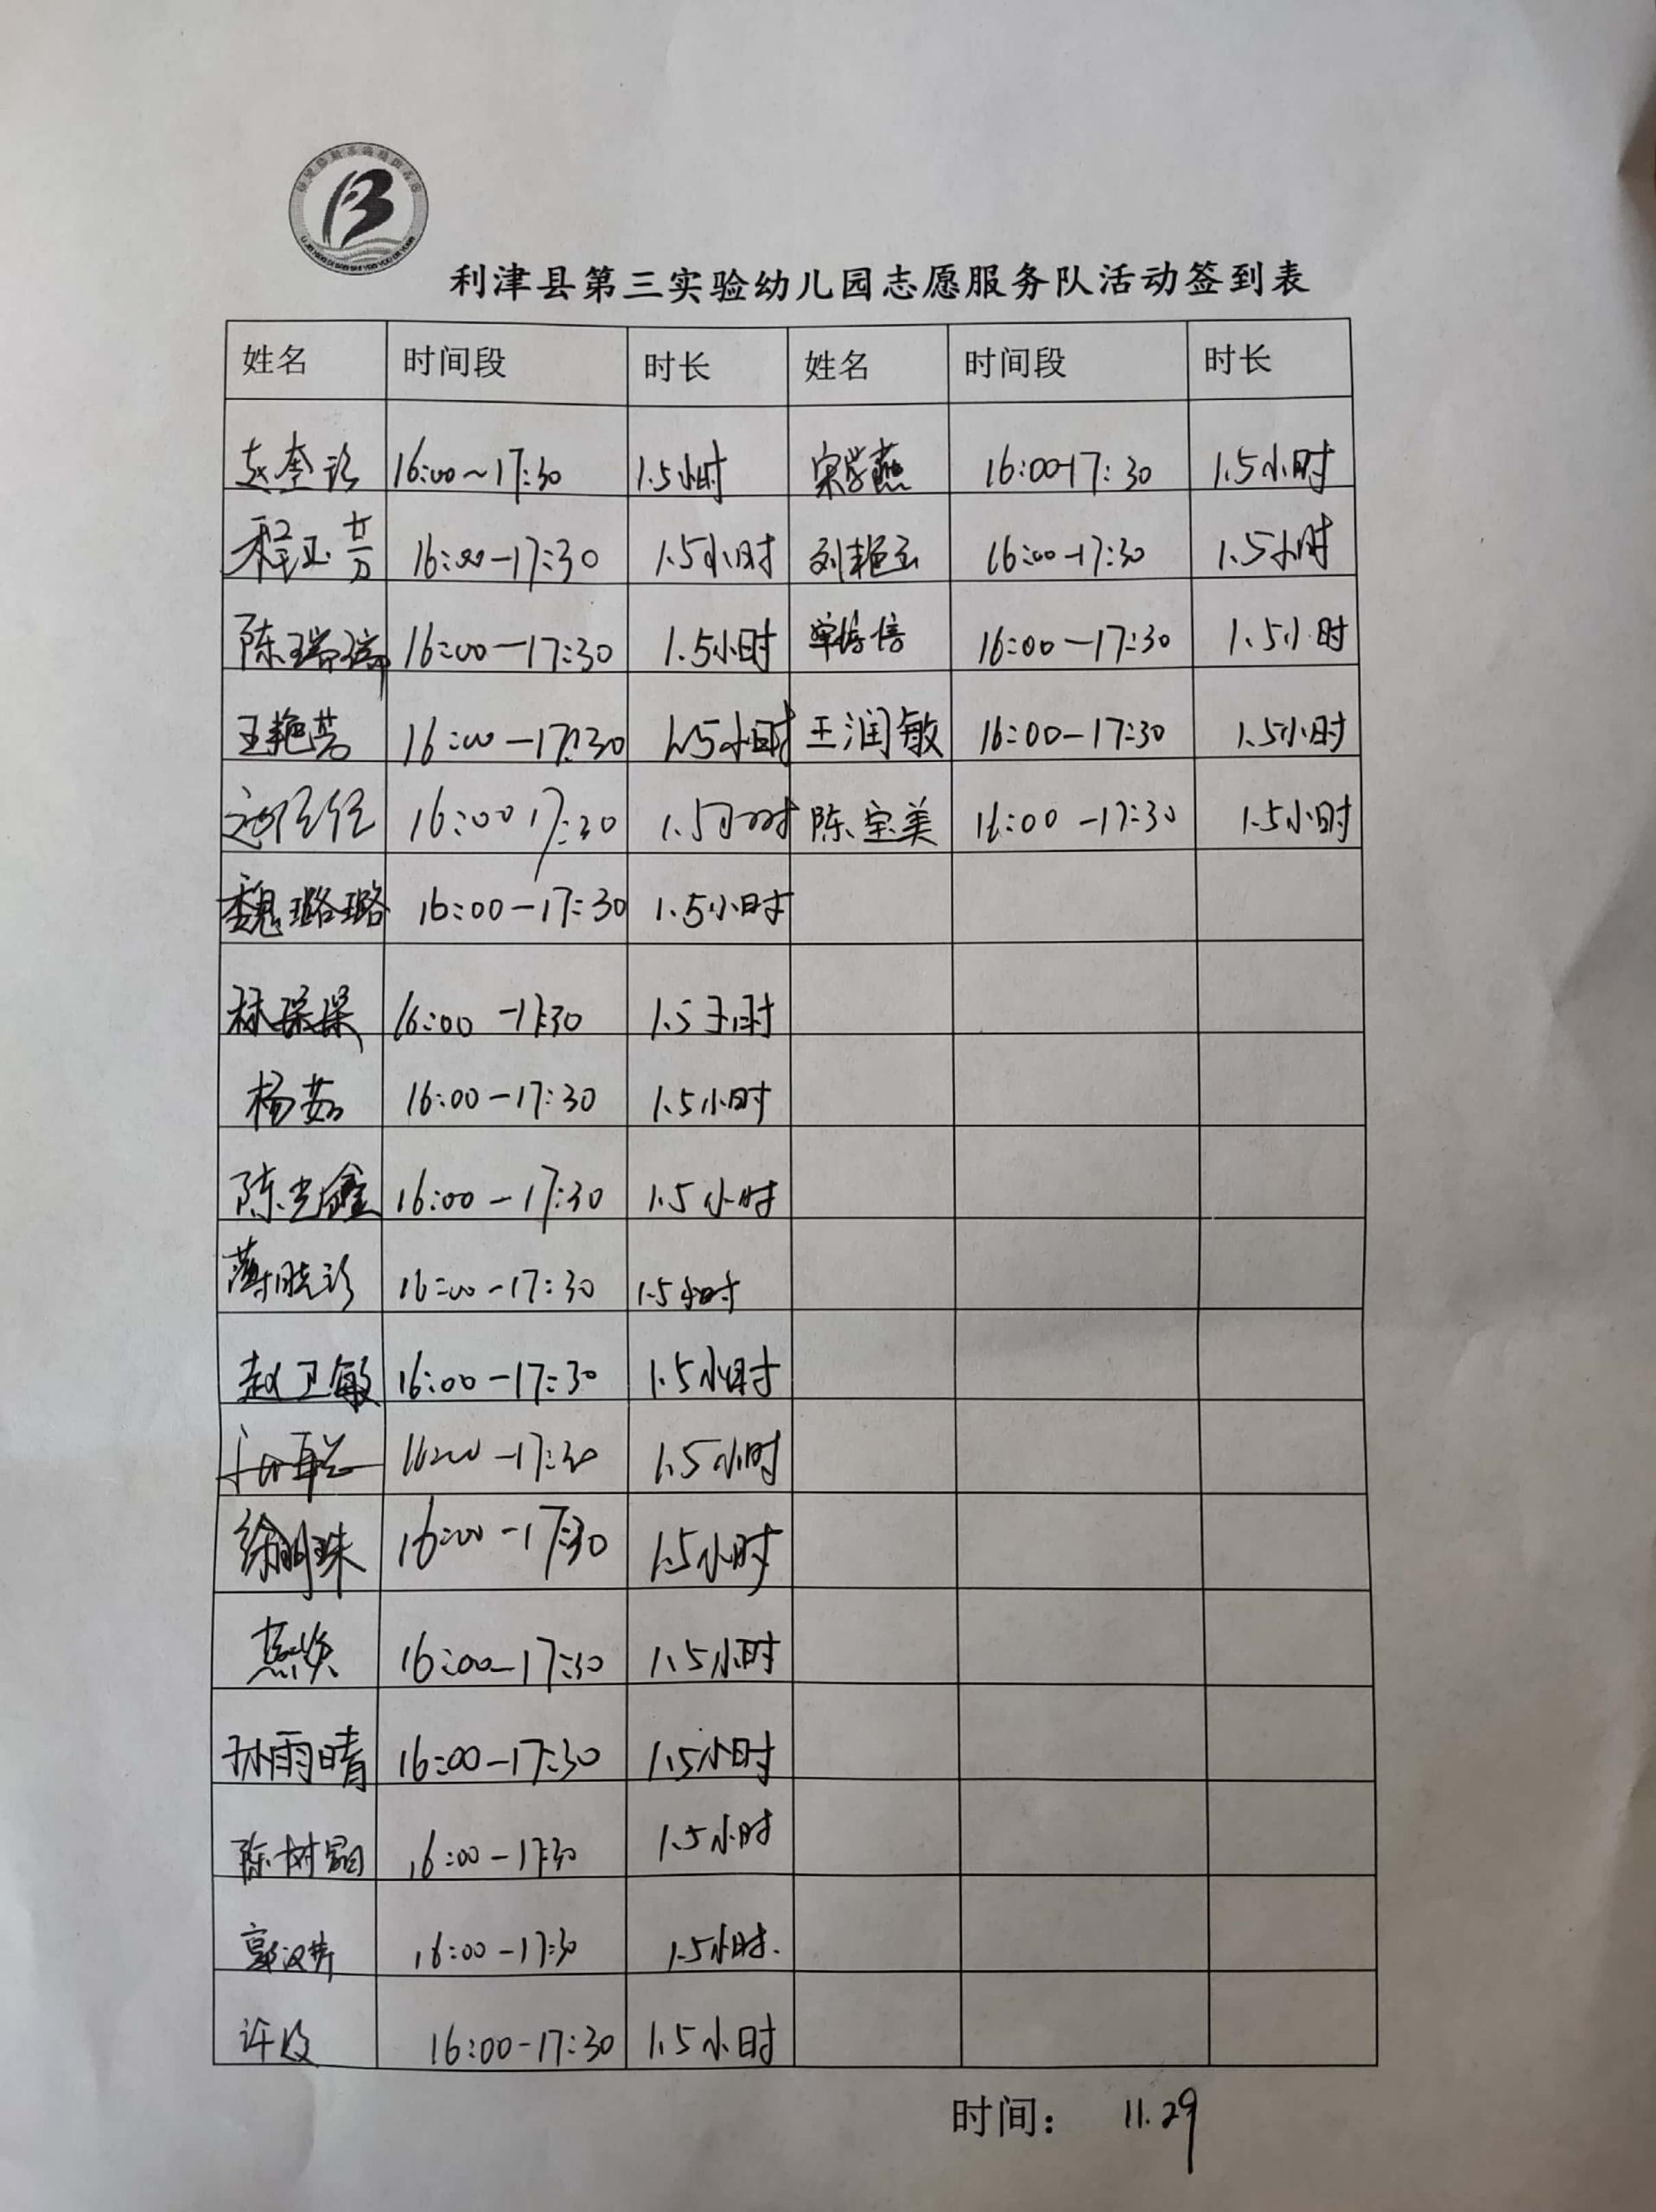 利津县第三实验幼儿园志愿服务队活动签到表
姓名 时间段 时长 姓名 时间段 时长
赵奎 16:00~17:30 1.5小时 宋学燕 16:00-17:30 1.5小时
程玉芳 16:00-17:30 1.5小时 刘艳玉 16:00-17:30 1.5小时
陈瑞瑞 16:00-17:30 1.5小时 16:00-17:30 1.5小时
王艳芳 16:00-17:30 1.5小时 王润敏 16:00-17:30 1.5小时
16:00 17:30 1.5小时 陈宝美 16:00-17:30 1.5小时
魏璐璐 16:00-17:30 1.5小时
林琛琛 16:00-17:30 1.5小时
杨茹 16:00-17:30 1.5小时
陈光鑫 16:00-17:30 1.5小时
薄晓 16:00-17:30 1.5小时
赵卫敏 16:00-17:30 1.5小时
16:00-17:30 1.5小时
徐明珠 16:00-17:30 1.5小时
燕焕 16:00-17:30 1.5小时
孙雨晴 16:00-17:30 1.5小时
陈树 16:00-17:30 1.5小时
郭汉 16:00-17:30 1.5小时.
许 16:00-17:30 1.5小时
时间: 11.29